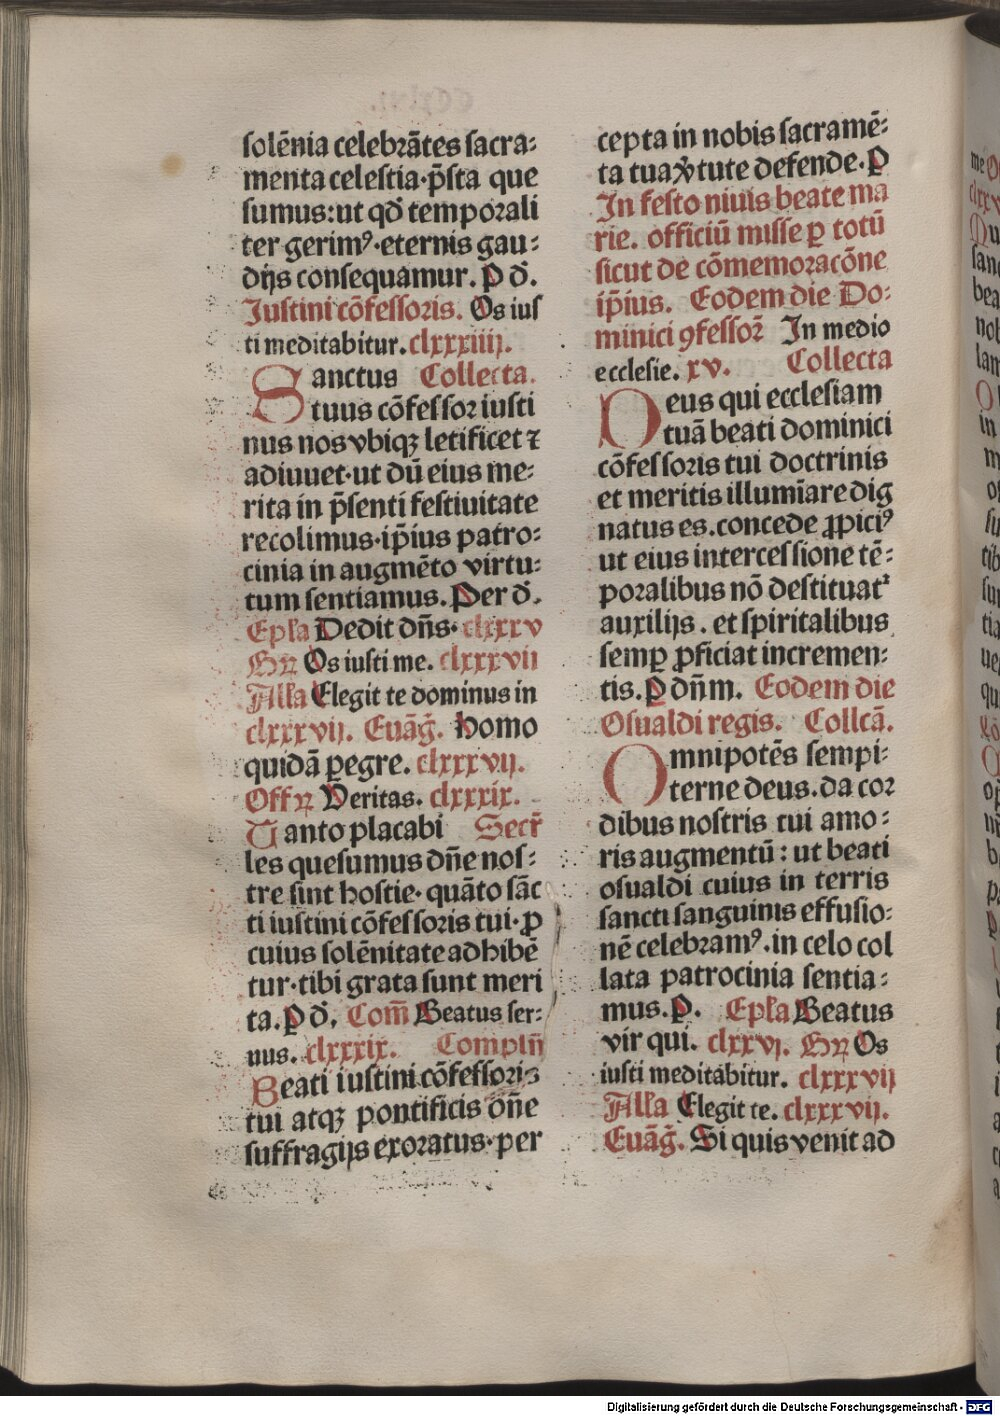 solēnia celebrātes sacra:
menta celestia·p̄sta que
sumus:ut qđ temporali
ter gerimꝰ·eternis gau:
dijs consequamur. P đ.
Iustini cōfessoris. Os ius
ti meditabitur. clxxxiiij.
Sanctus Collecta.
tuus cōfessor iusti
nus nos vbiqꝫ letificet ⁊
adiuuet·ut dū eius me:
rita in p̄senti festiuitate
recolimus·ip̄ius patro:
cinia in augmēto virtu:
tum sentiamus. Per đ.
Ep̄la Dedit dn̄s· clxxxv
Gꝝ Os iusti me. clxxxvij
Alla Elegit te dominus in
clxxxvij. Euāg̃. Homo
quidā ꝑegre. clxxxvij.
Offꝝ Veritas. clxxxix.
Tanto placabi Secr̄
les quesumus dn̄e nos:
tre sint hostie· quāto sāc
ti iustini cōfessoris tui·ꝑ
cuius solēnitate adhibē
tur·tibi grata sunt meri
ta. P đ. Com̄ Beatus ser:
uus. clxxxix. Compln̄
Beati iustini cōfessoris
tui atqꝫ pontificis dn̄e
suffragijs exoratus·per
cepta in nobis sacramē:
ta tua v̾tute defende. P
In festo niuis beate ma
rie. officiū misse ꝑ totū
sicut de cōmemoracōne
ip̄ius. Eodem die Do:
minici ꝯfessor̄ In medio
ecclesie. xv. Collecta
Deus qui ecclesiam
tuā beati dominici
cōfessoris tui doctrinis
et meritis illumīare dig
natus es. concede ꝓpiciꝰ
ut eius intercessione tē:
poralibus nō destituatᷣ
auxilijs. et spiritalibus
semꝑ ꝓficiat incremen:
tis. P dn̄m. Eodem die
Osualdi regis. Collcā.
Omnipotēs sempi:
terne deus. da cor
dibus nostris tui amo:
ris augmentū: ut beati
osualdi cuius in terris
sancti sanguinis effusio:
nē celebramꝰ. in celo col
lata patrocinia sentia:
mus. P. Ep̄la Beatus
vir qui. clxxvj. Gꝝ Os
iusti meditabitur. clxxxvij
Alla Elegit te. clxxxvij.
Euāg̃. Si quis venit ad
Digitalisierung gefördert durch die Deutsche Forschungsgemeinschaft - DFG